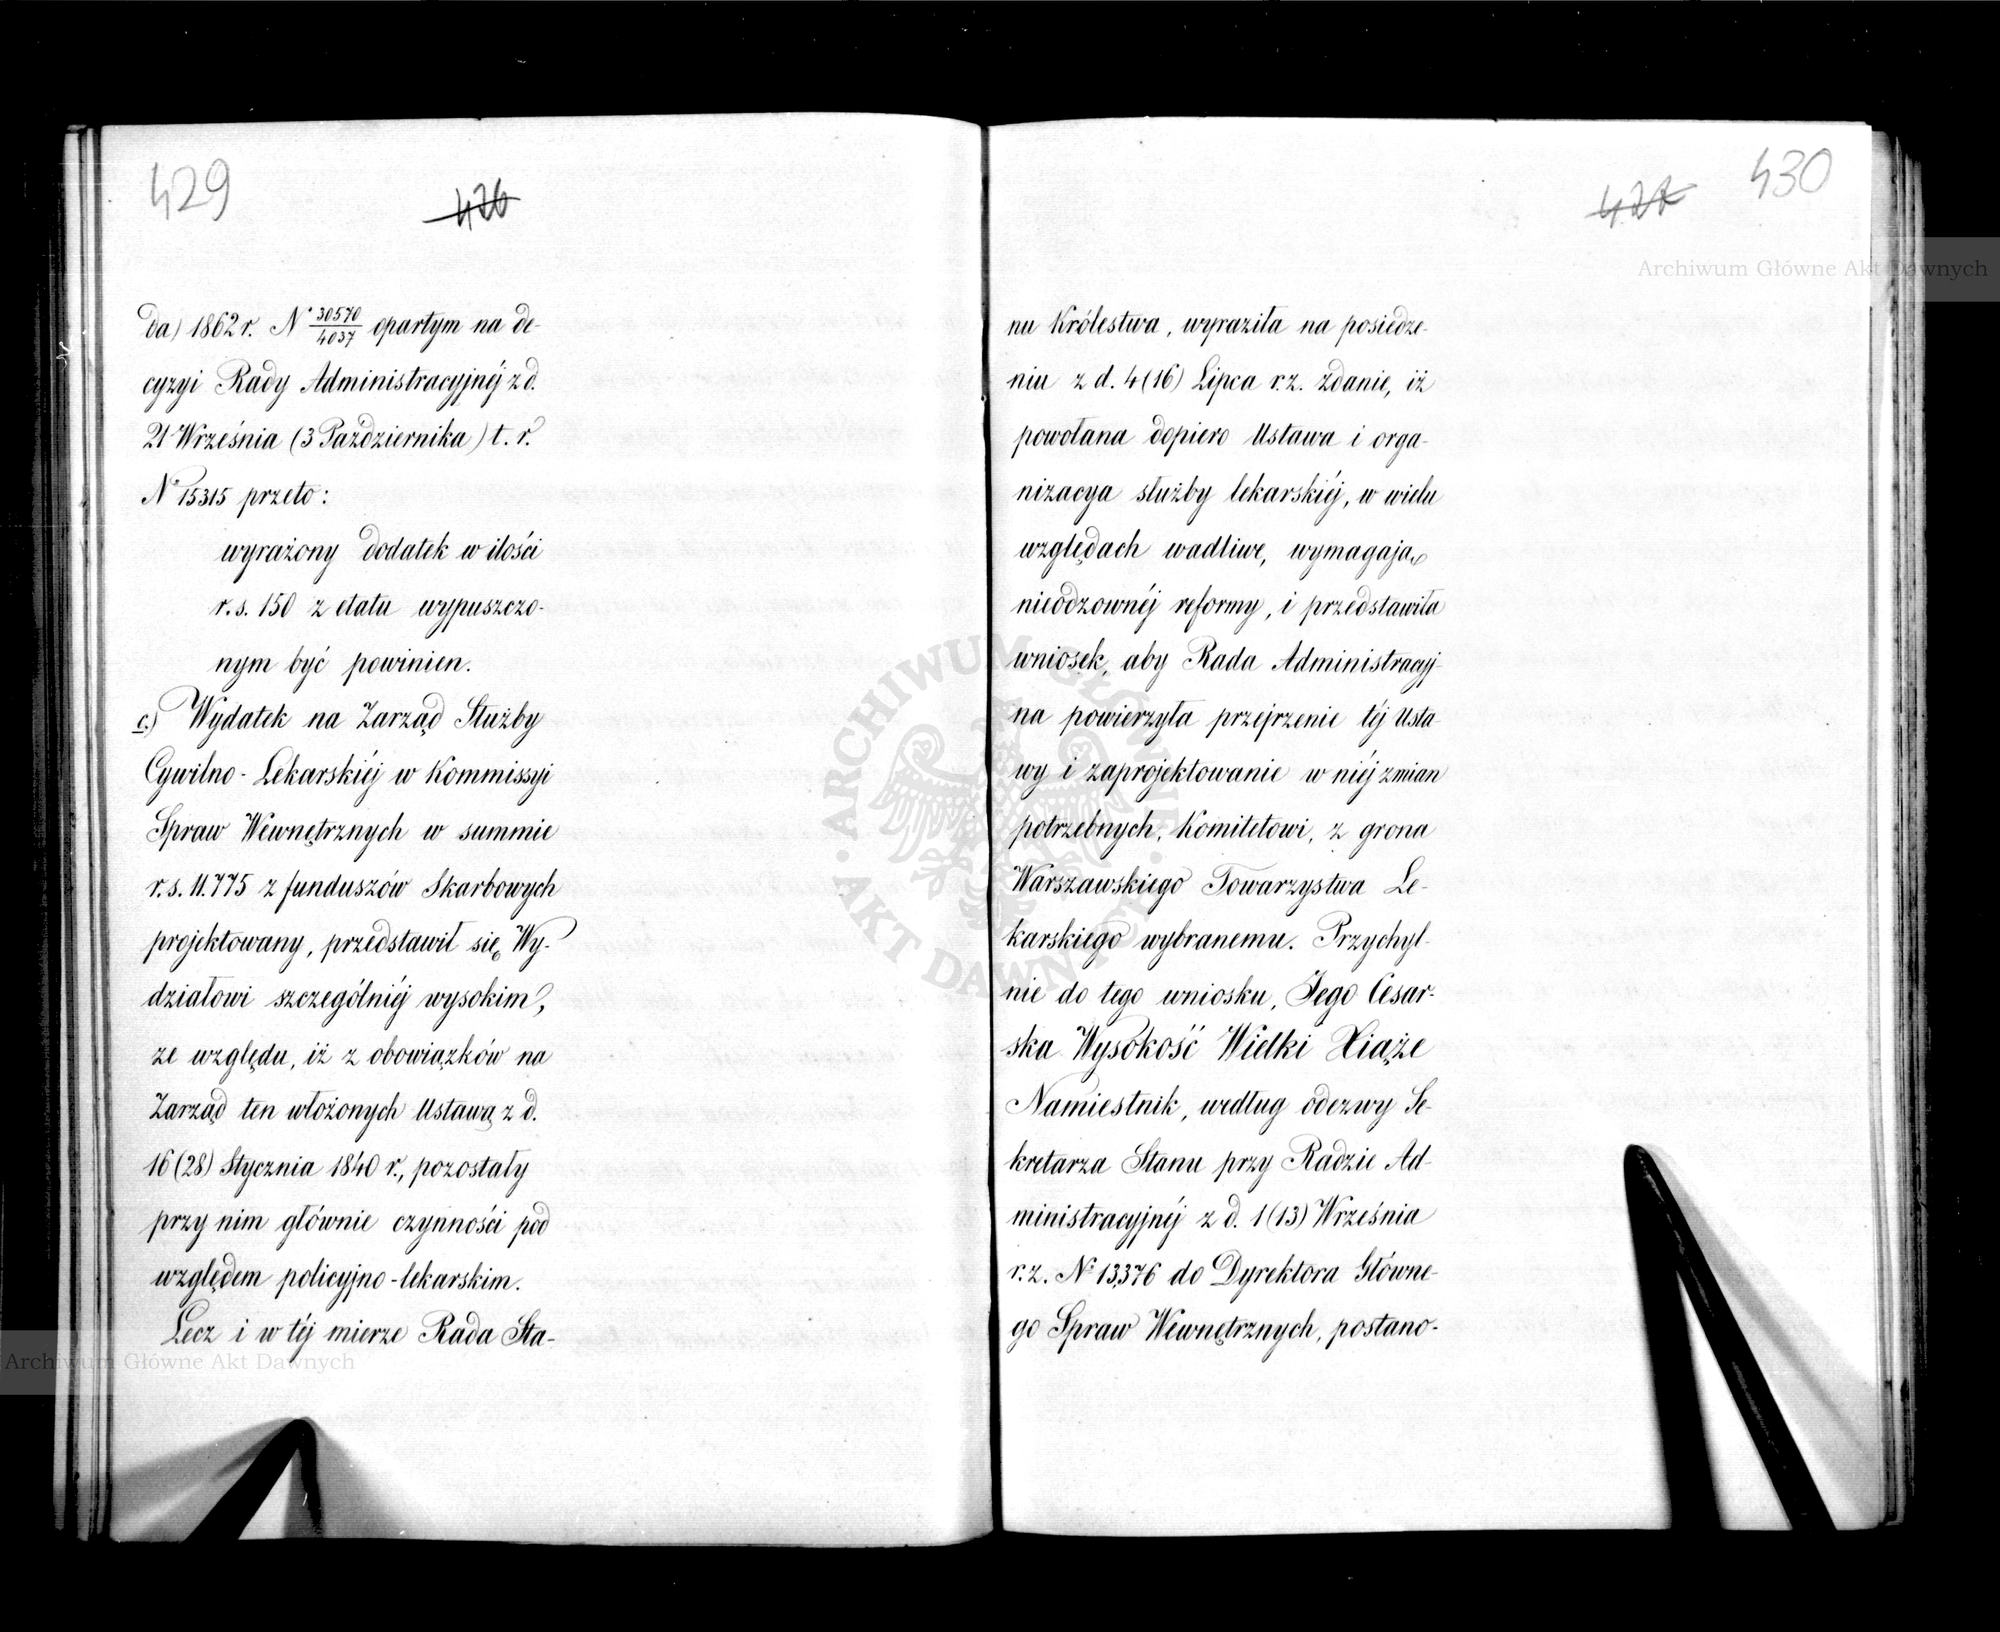 429
426
da) 1862 r. N° 30570/4037 opartym na de-
cyzyi Rady Administracyjnéj z d.
21 Września (3 Października) t. r.
N° 15315 przeto:
wyrażony dodatek w ilości
r. s. 150 z etatu wypuszczo-
nym być powinien.
c.) Wydatek na Zarząd Służby
Cywilno-Lekarskiéj w Kommissyi
Spraw Wewnętrznych w summie
r. s. 11.775 z funduszów Skarbowych
projektowany, przedstawił się Wy-
działowi szczególniéj wysokim,
ze względu, iż z obowiązków na
Zarząd ten włożonych Ustawą z d.
16 (28) Stycznia 1840 r., pozostały
przy nim głównie czynności pod
względem policyjno-lekarskim.
Lecz i w téj mierze Rada Sta-
430
427
nu Królestwa, wyraziła na posiedze-
niu z d. 4 (16) Lipca r. z. zdanie, iż
powołana dopiero Ustawa i orga-
nizacya służby lekarskiéj, w wielu
względach wadliwe, wymagają
nieodzownéj reformy, i przedstawiła
wniosek, aby Rada Administracyj-
na powierzyła przejrzenie téj Usta-
wy i zaprojektowanie w niéj zmian
potrzebnych, Komitetowi, z grona
Warszawskiego Towarzystwa Le-
karskiego wybranemu. Przychyl-
nie do tego wniosku, Jego Cesar-
ska Wysokość Wielki Xiąże
Namiestnik, według odezwy Se-
kretarza Stanu przy Radzie Ad-
ministracyjnéj z d. 1 (13) Września
r. z. N° 13,376 do Dyrektora Główne-
go Spraw Wewnętrznych, postano-
Archiwum Główne Akt Dawnych
Archiwum Główne Akt Dawnych
ARCHIWUM GŁÓWNE · AKT DAWNYCH ·